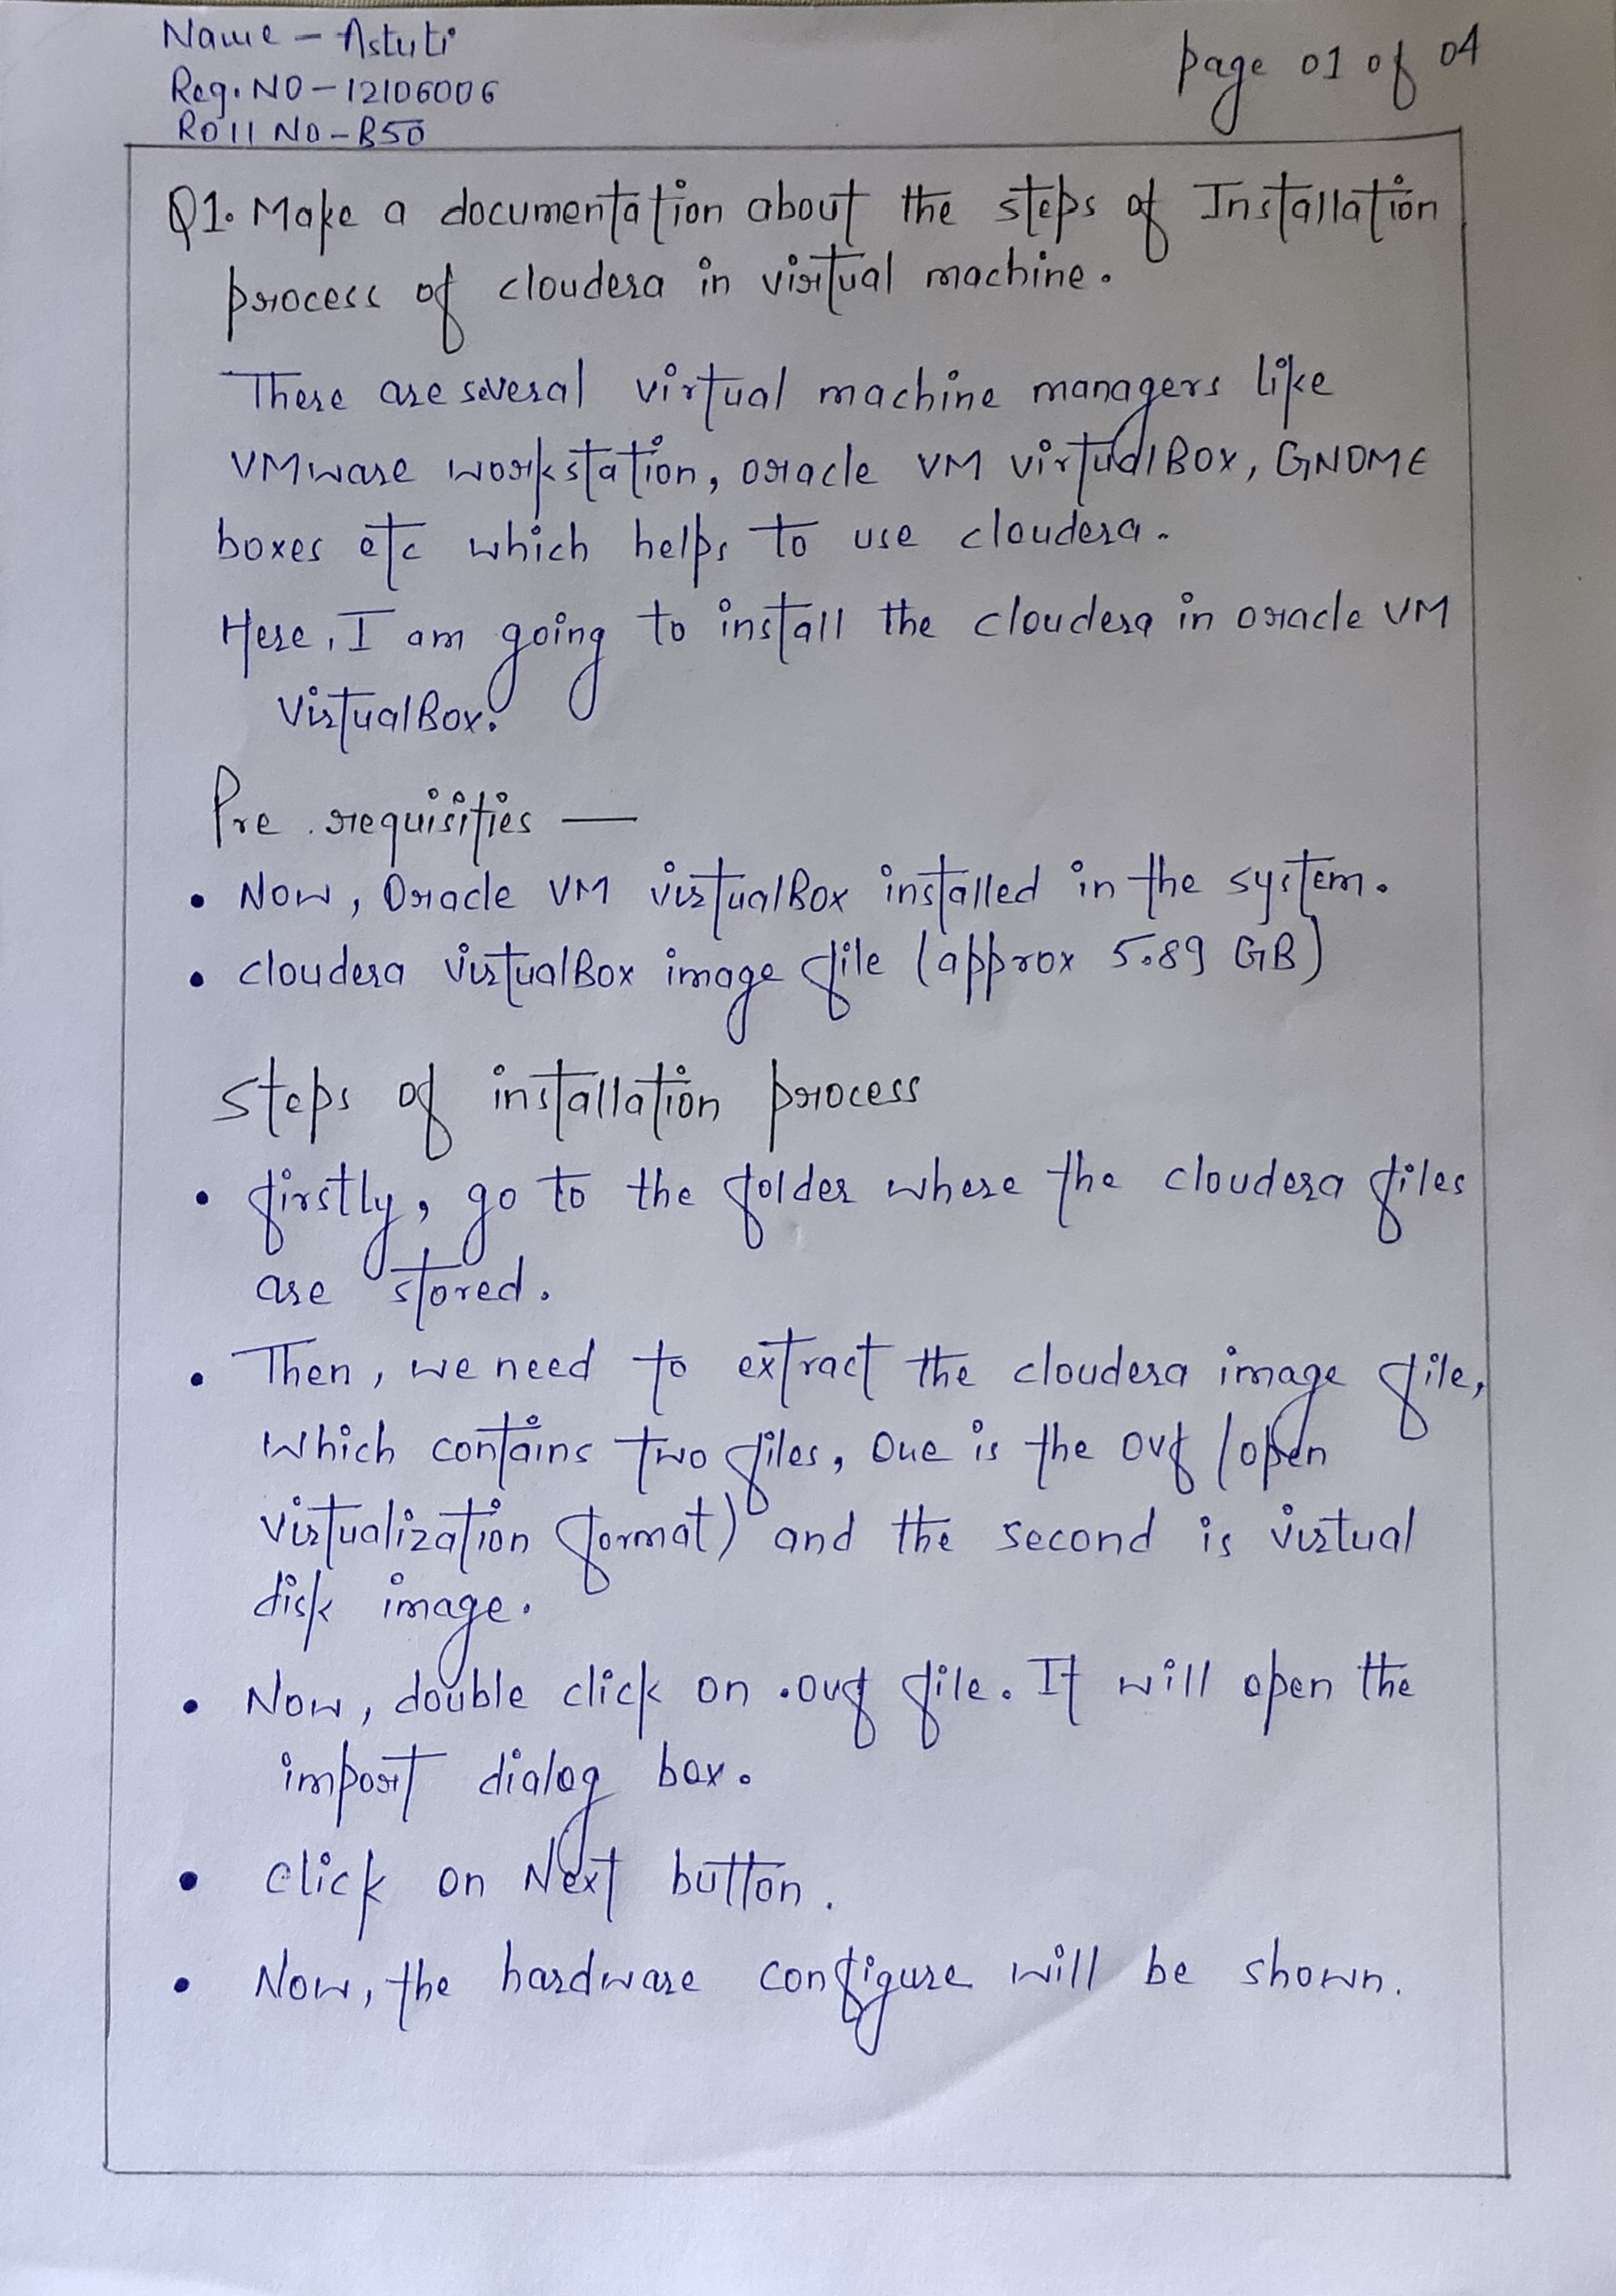 Name - Astuti
Reg. NO - 12106006
Roll No - B50
page 01 of 04
Q1. Make a documentation about the steps of Installation
process of cloudera in virtual machine.
There are several virtual machine managers like
VMware workstation, oracle VM virtualBox, GNOME
boxes etc which helps to use cloudera.
Here, I am going to install the cloudera in oracle VM
VirtualBox.
Pre requisities —
• Now, Oracle VM virtualBox installed in the system.
• cloudera virtualBox image file (approx 5.89 GB)
steps of installation process
• firstly, go to the folder where the cloudera files
are stored.
• Then, we need to extract the cloudera image file,
which contains two files, One is the ovf (open
virtualization format) and the second is virtual
disk image.
• Now, double click on .ovf file. It will open the
import dialog box.
• click on Next button.
• Now, the hardware configure will be shown.